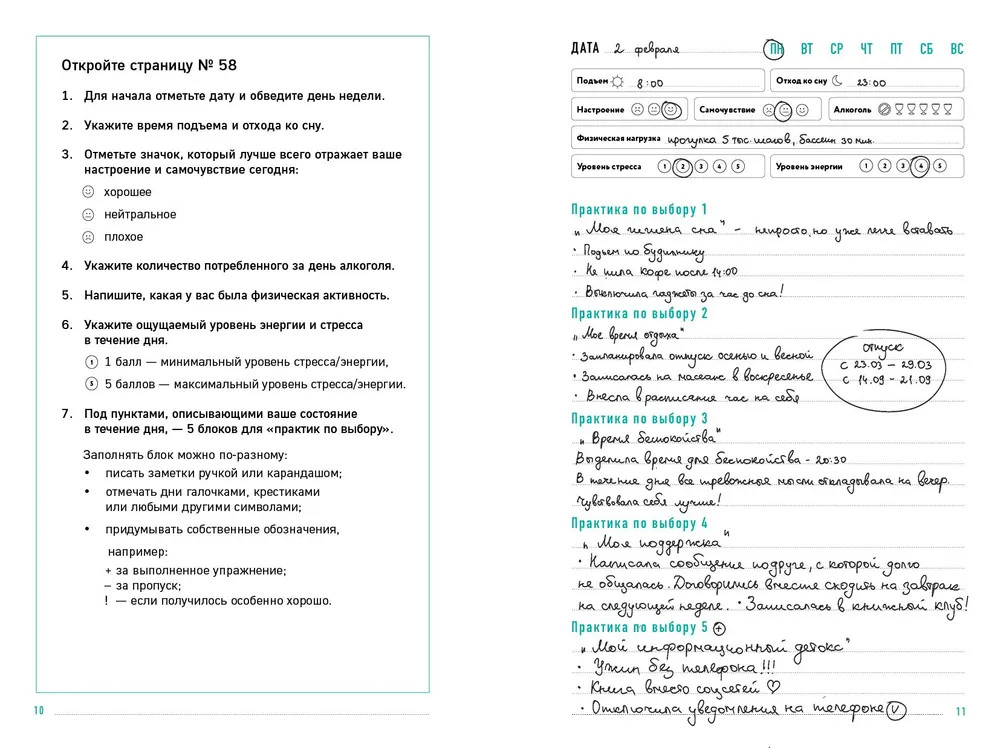 Откройте страницу № 58
1. Для начала отметьте дату и обведите день недели.
2. Укажите время подъема и отхода ко сну.
3. Отметьте значок, который лучше всего отражает ваше
настроение и самочувствие сегодня:
хорошее
нейтральное
плохое
4. Укажите количество потребленного за день алкоголя.
5. Напишите, какая у вас была физическая активность.
6. Укажите ощущаемый уровень энергии и стресса
в течение дня.
1 1 балл — минимальный уровень стресса/энергии,
5 5 баллов — максимальный уровень стресса/энергии.
7. Под пунктами, описывающими ваше состояние
в течение дня, — 5 блоков для «практик по выбору».
Заполнять блок можно по-разному:
• писать заметки ручкой или карандашом;
• отмечать дни галочками, крестиками
или любыми другими символами;
• придумывать собственные обозначения,
например:
+ за выполненное упражнение;
– за пропуск;
! — если получилось особенно хорошо.
10
ДАТА 2 февраля ПН ВТ СР ЧТ ПТ СБ ВС
Подъем 8:00 Отход ко сну 23:00
Настроение Самочувствие Алкоголь
Физическая нагрузка прогулка 5 тыс. шагов, бассейн 30 мин.
Уровень стресса 1 2 3 4 5 Уровень энергии 1 2 3 4 5
Практика по выбору 1
„Моя гигиена сна" - непросто, но уже легче вставать
• Подъем по будильнику
• Не пила кофе после 14:00
• Выключила гаджеты за час до сна!
Практика по выбору 2
„Мое время отдыха"
• Запланировала отпуск осенью и весной
• Записалась на массаж в воскресенье
• Внесла в расписание час на себя
отпуск
с 23.03 – 29.03
с 14.09 – 21.09
Практика по выбору 3
„Время беспокойства"
Выделила время для беспокойства - 20:30
В течение дня все тревожные мысли откладывала на вечер.
Чувствовала себя лучше!
Практика по выбору 4
„Моя поддержка"
• Написала сообщение подруге, с которой долго
не общалась. Договорились вместе сходить на завтрак
на следующей неделе. • Записалась в книжный клуб!
Практика по выбору 5 +
„Мой информационный детокс"
• Ужин без телефона!!!
• Книга вместо соцсетей ♡
• Отключила уведомления на телефоне v
11